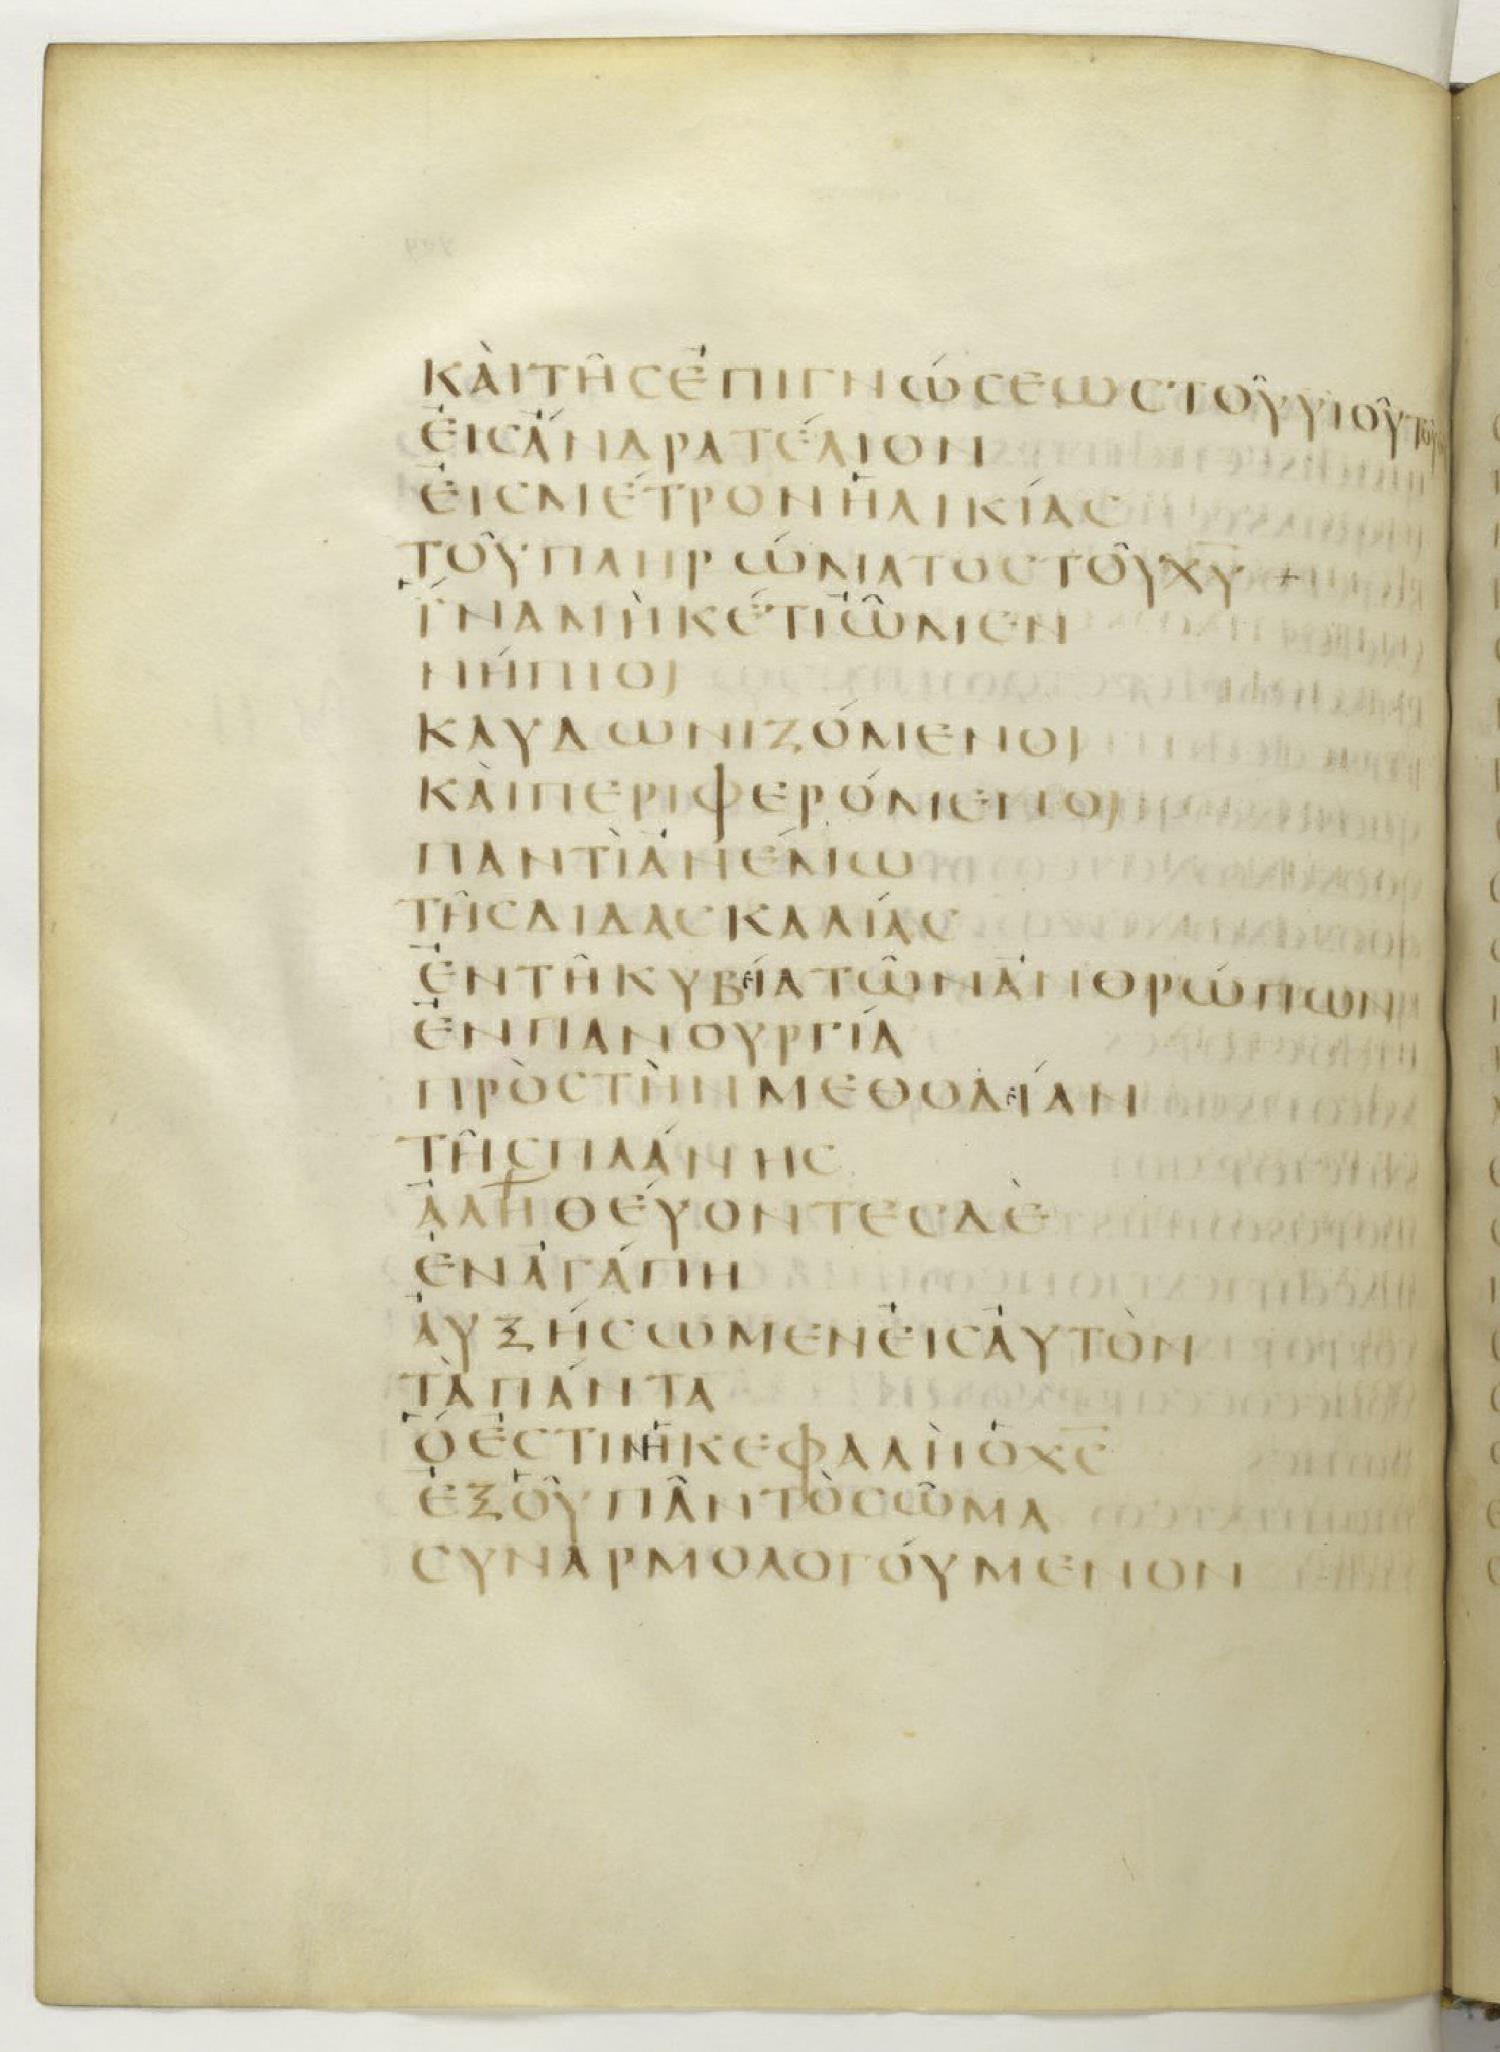 ΚΑΙΤΗΣΕΠΙΓΝΩΣΕΩΣΤΟΥΥΙΟΥΤΟΥ
ΕΙΣΑΝΔΡΑΤΕΛΙΟΝ
ΕΙΣΜΕΤΡΟΝΗΛΙΚΙΑΣ
ΤΟΥΠΛΗΡΩΜΑΤΟΣΤΟΥΧΥ +
ΙΝΑΜΗΚΕΤΙΩΜΕΝ
ΝΗΠΙΟΙ
ΚΛΥΔΩΝΙΖΟΜΕΝΟΙ
ΚΑΙΠΕΡΙΦΕΡΟΜΕΝΟΙ
ΠΑΝΤΙΑΝΕΜΩ
ΤΗΣΔΙΔΑΣΚΑΛΙΑΣ
ΕΝΤΗΚΥΒΕΙΑΤΩΝΑΝΘΡΩΠΩΝ
ΕΝΠΑΝΟΥΡΓΙΑ
ΠΡΟΣΤΗΝΜΕΘΟΔΕΙΑΝ
ΤΗΣΠΛΑΝΗΣ
ΑΛΗΘΕΥΟΝΤΕΣΔΕ
ΕΝΑΓΑΠΗ
ΑΥΞΗΣΩΜΕΝΕΙΣΑΥΤΟΝ
ΤΑΠΑΝΤΑ
ΟΕΣΤΙΝΗΚΕΦΑΛΗΟΧΣ
ΕΞΟΥΠΑΝΤΟΣΩΜΑ
ΣΥΝΑΡΜΟΛΟΓΟΥΜΕΝΟΝ